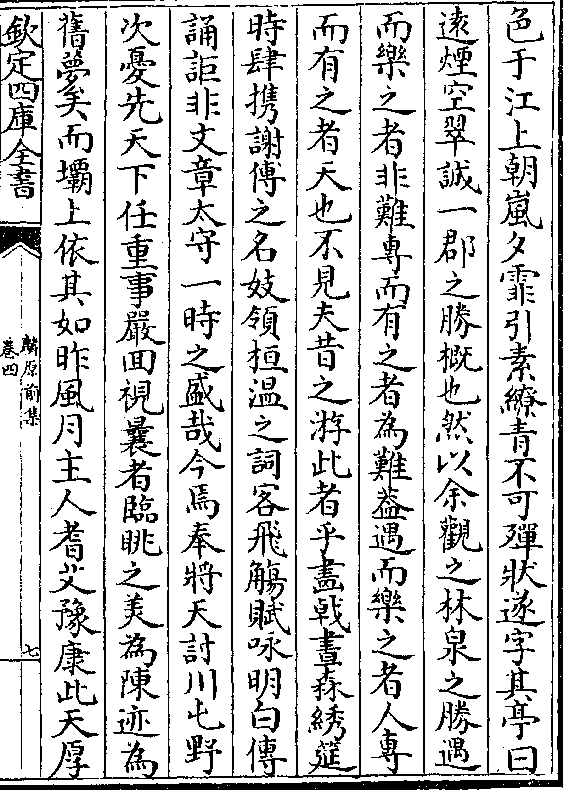 色于江上朝嵐夕霏引素繚青不可殫狀遂字其亭曰
遠煙空翠誠一郡之勝概也然以余觀之林泉之勝遇
而樂之者非難專而有之者為難葢遇而樂之者人專
而有之者天也不見夫昔之游此者乎畵戟晝森綉筵
時肆携謝傅之名妓領桓温之詞客飛觴賦咏明白傳
誦詎非文章太守一時之盛哉今焉奉將天討川屯野
次憂先天下任重事嚴回視曩者臨眺之美為陳迹為
舊夢矣而壩上依其如昨風月主人耆艾豫康此天厚
欽定四庫全書
麟原前集
卷四
七